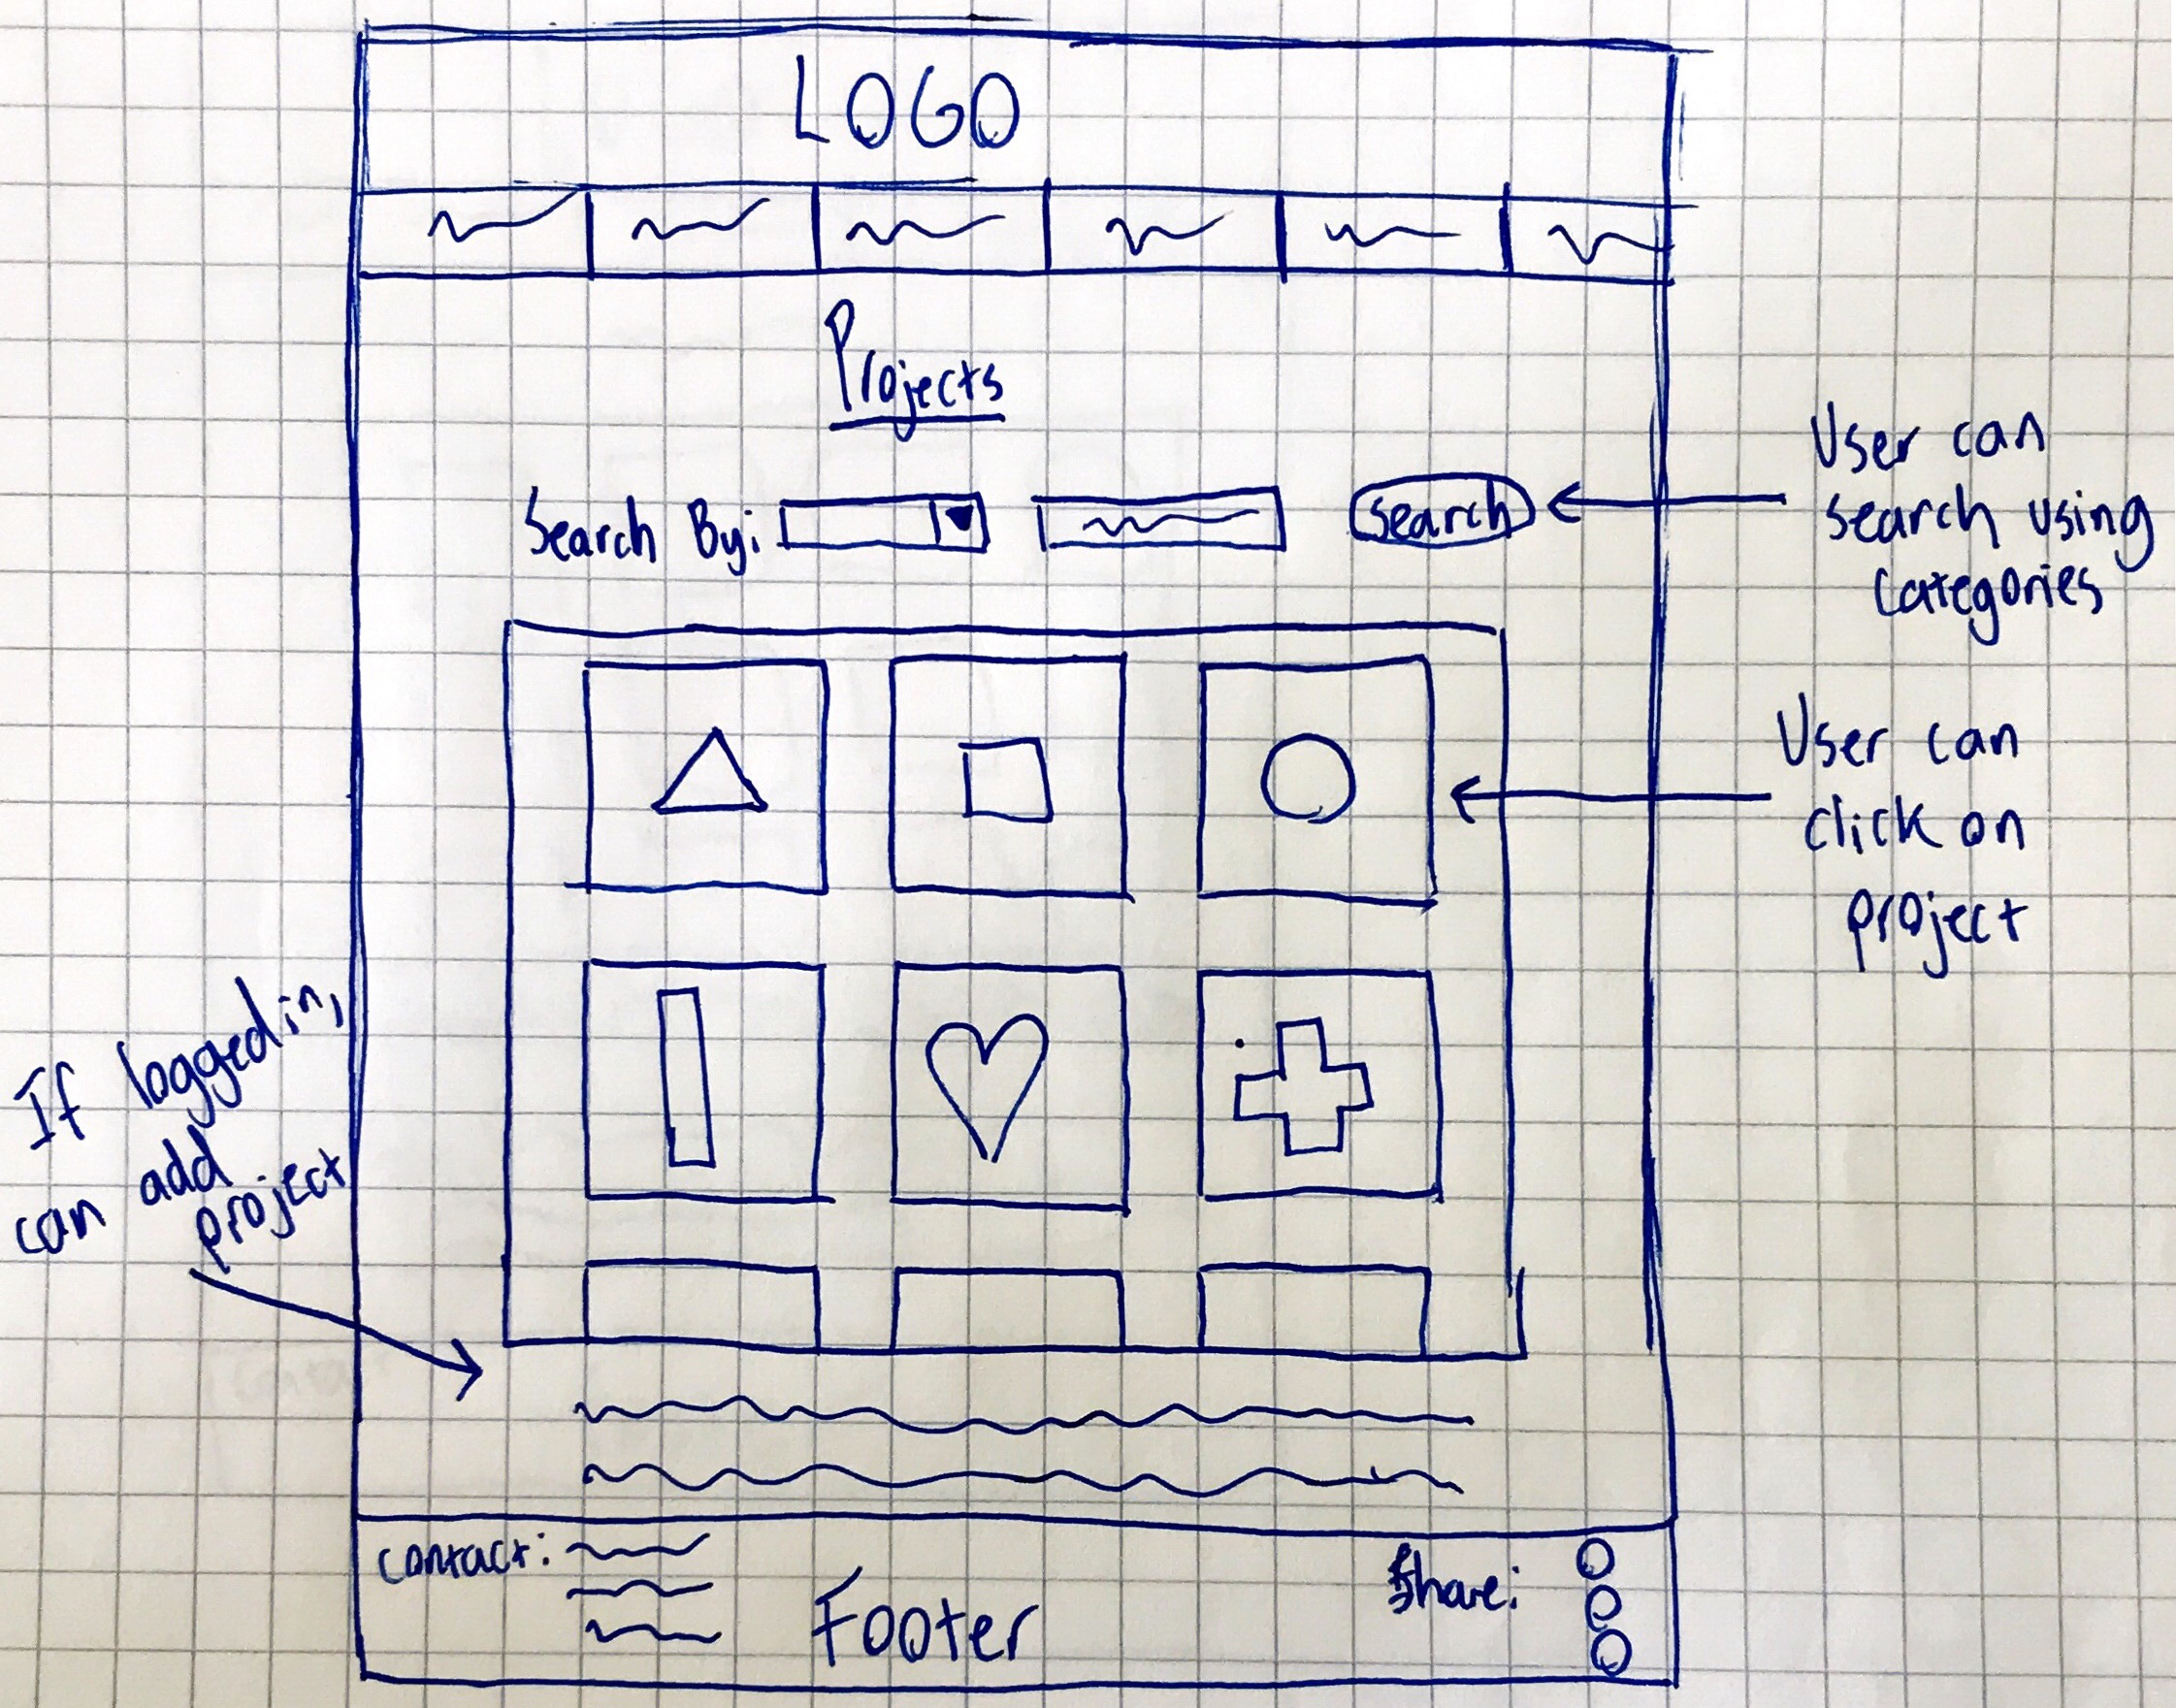 LOGO
Projects
Search By:
Search
User can
search using
categories
User can
click on
project
If logged in,
can add
project
contact:
Share:
Footer